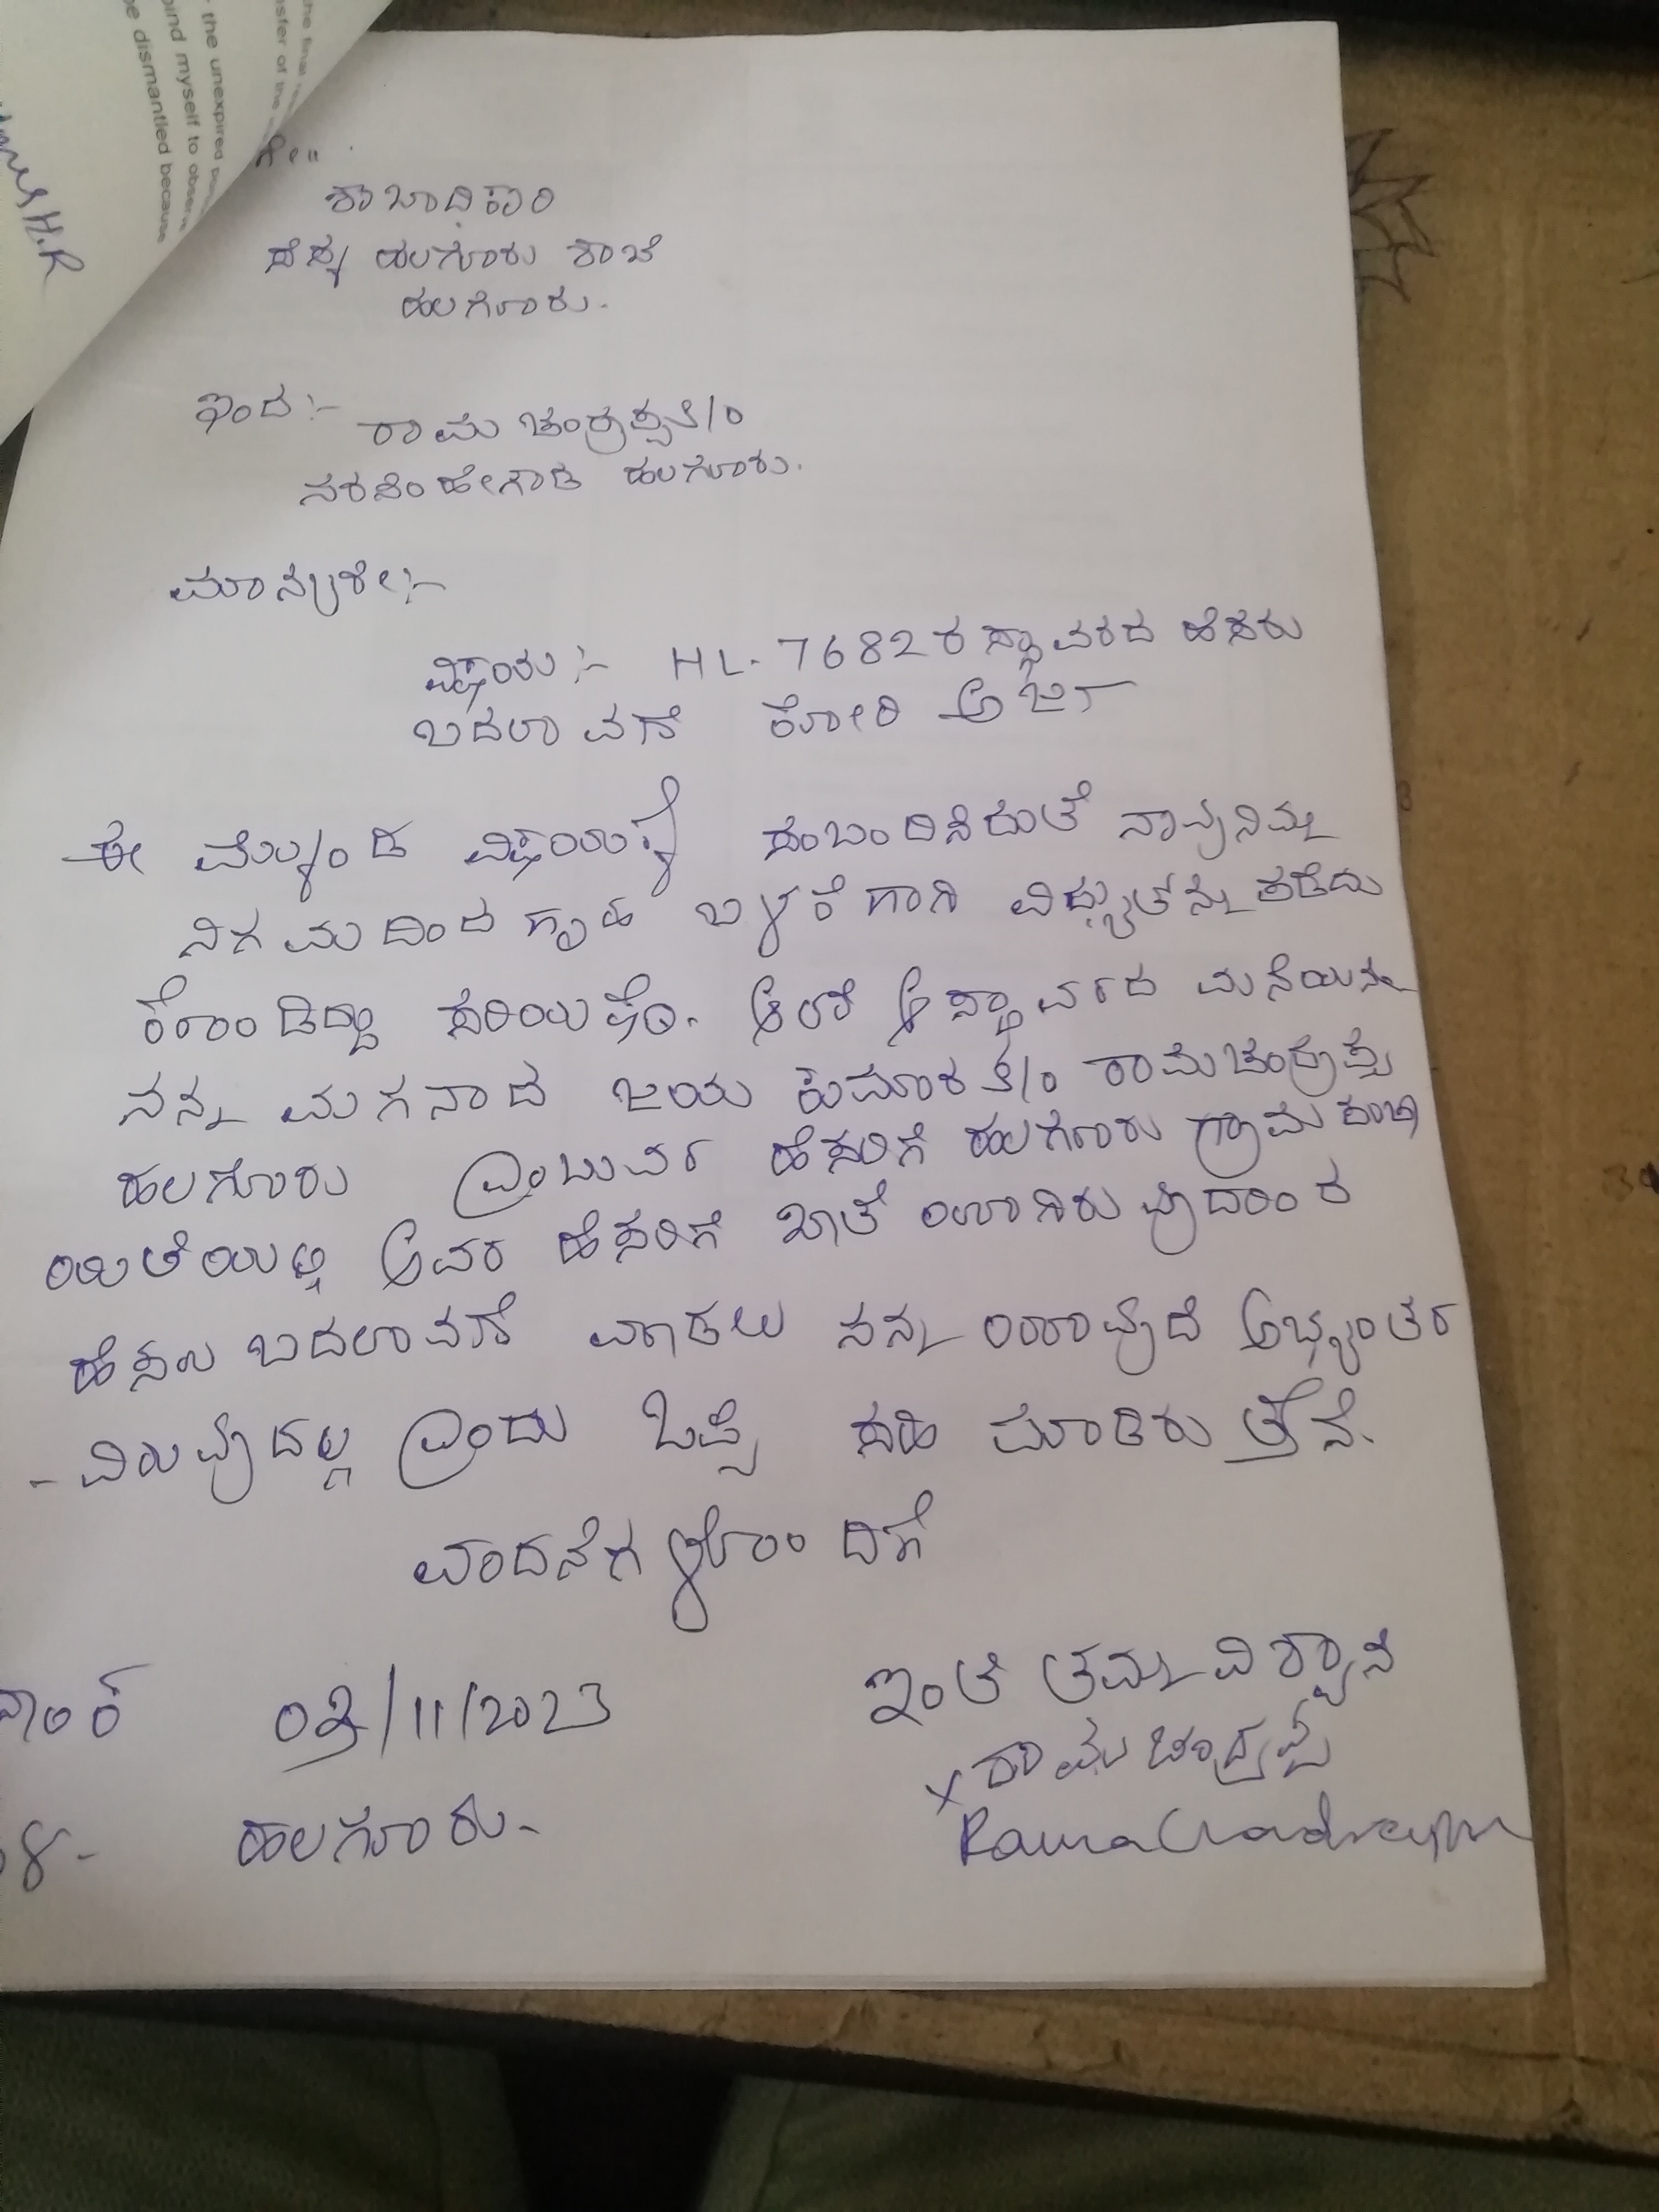 the final
nsfer of the
the unexpired
bind myself to observe
be dismantled because
H.R
ಗೇ=
ಶಾಖಾದಿಕಾರಿ
ಸೆಸ್ಕ ಹಲಗೂರು ಶಾಖೆ
ಹಲಗೂರು.
ಇಂದ:-
ರಾಮಚಂದ್ರಪ್ಪ ತಿ/ಂ
ನರಸಿಂಹೇಗೌಡ ಹಲಗೂರು.
ಮಾನ್ಯರೇ:-
ವಿಷಯ:- HL-7682ರ ಸ್ಥಾವರದ ಹೆಸರು
ಬದಲಾವಣೆ ಕೋರಿ ಅರ್ಜಿ
ಈ ಮೇಲ್ಕಂಡ ವಿಷಯಕ್ಕೆ ಸಂಬಂದಿಸಿರುತೆ ನಾವು ನಿಮ್ಮ
ನಿಗಮದಿಂದ ಗೃಹ ಬಳಕೆಗಾಗಿ ವಿದ್ಯುತ್‌ನ್ನು ಪಡೆದು
ಕೊಂಡಿದ್ದು ಸರಿಯಷ್ಟೆ. ಆದರೆ ಆ ಸ್ಥಾವರದ ಮನೆಯನ್ನು
ನನ್ನ ಮಗನಾದ ಜಯಕುಮಾರ ತಿ/ಂ ರಾಮಚಂದ್ರಪ್ಪ
ಹಲಗೂರು ಎಂಬುವರ ಹೆಸರಿಗೆ ಹಲಗೂರು ಗ್ರಾಮ ಪಂಚಾ
ಯಿತಿಯಲ್ಲಿ ಅವರ ಹೆಸರಿಗೆ ಖಾತೆಯಾಗಿರುವುದರಿಂದ
ಹೆಸರು ಬದಲಾವಣೆ ಮಾಡಲು ನನ್ನ ಯಾವುದೆ ಅಭ್ಯಂತರ
-ವಿರುವುದಿಲ್ಲ ಎಂದು ಒಪ್ಪಿ ಸಹಿ ಮಾಡಿರುತ್ತೆನೆ.
ವಂದನೆಗಳೊಂದಿಗೆ
ನಾಂಕ 03/11/2023
ಇಂತಿ ತಮ್ಮ ವಿಶ್ವಾಸಿ
x ರಾಮಚಂದ್ರಪ್ಪ
ಳ- ಹಲಗೂರು.
Ramachandrappa